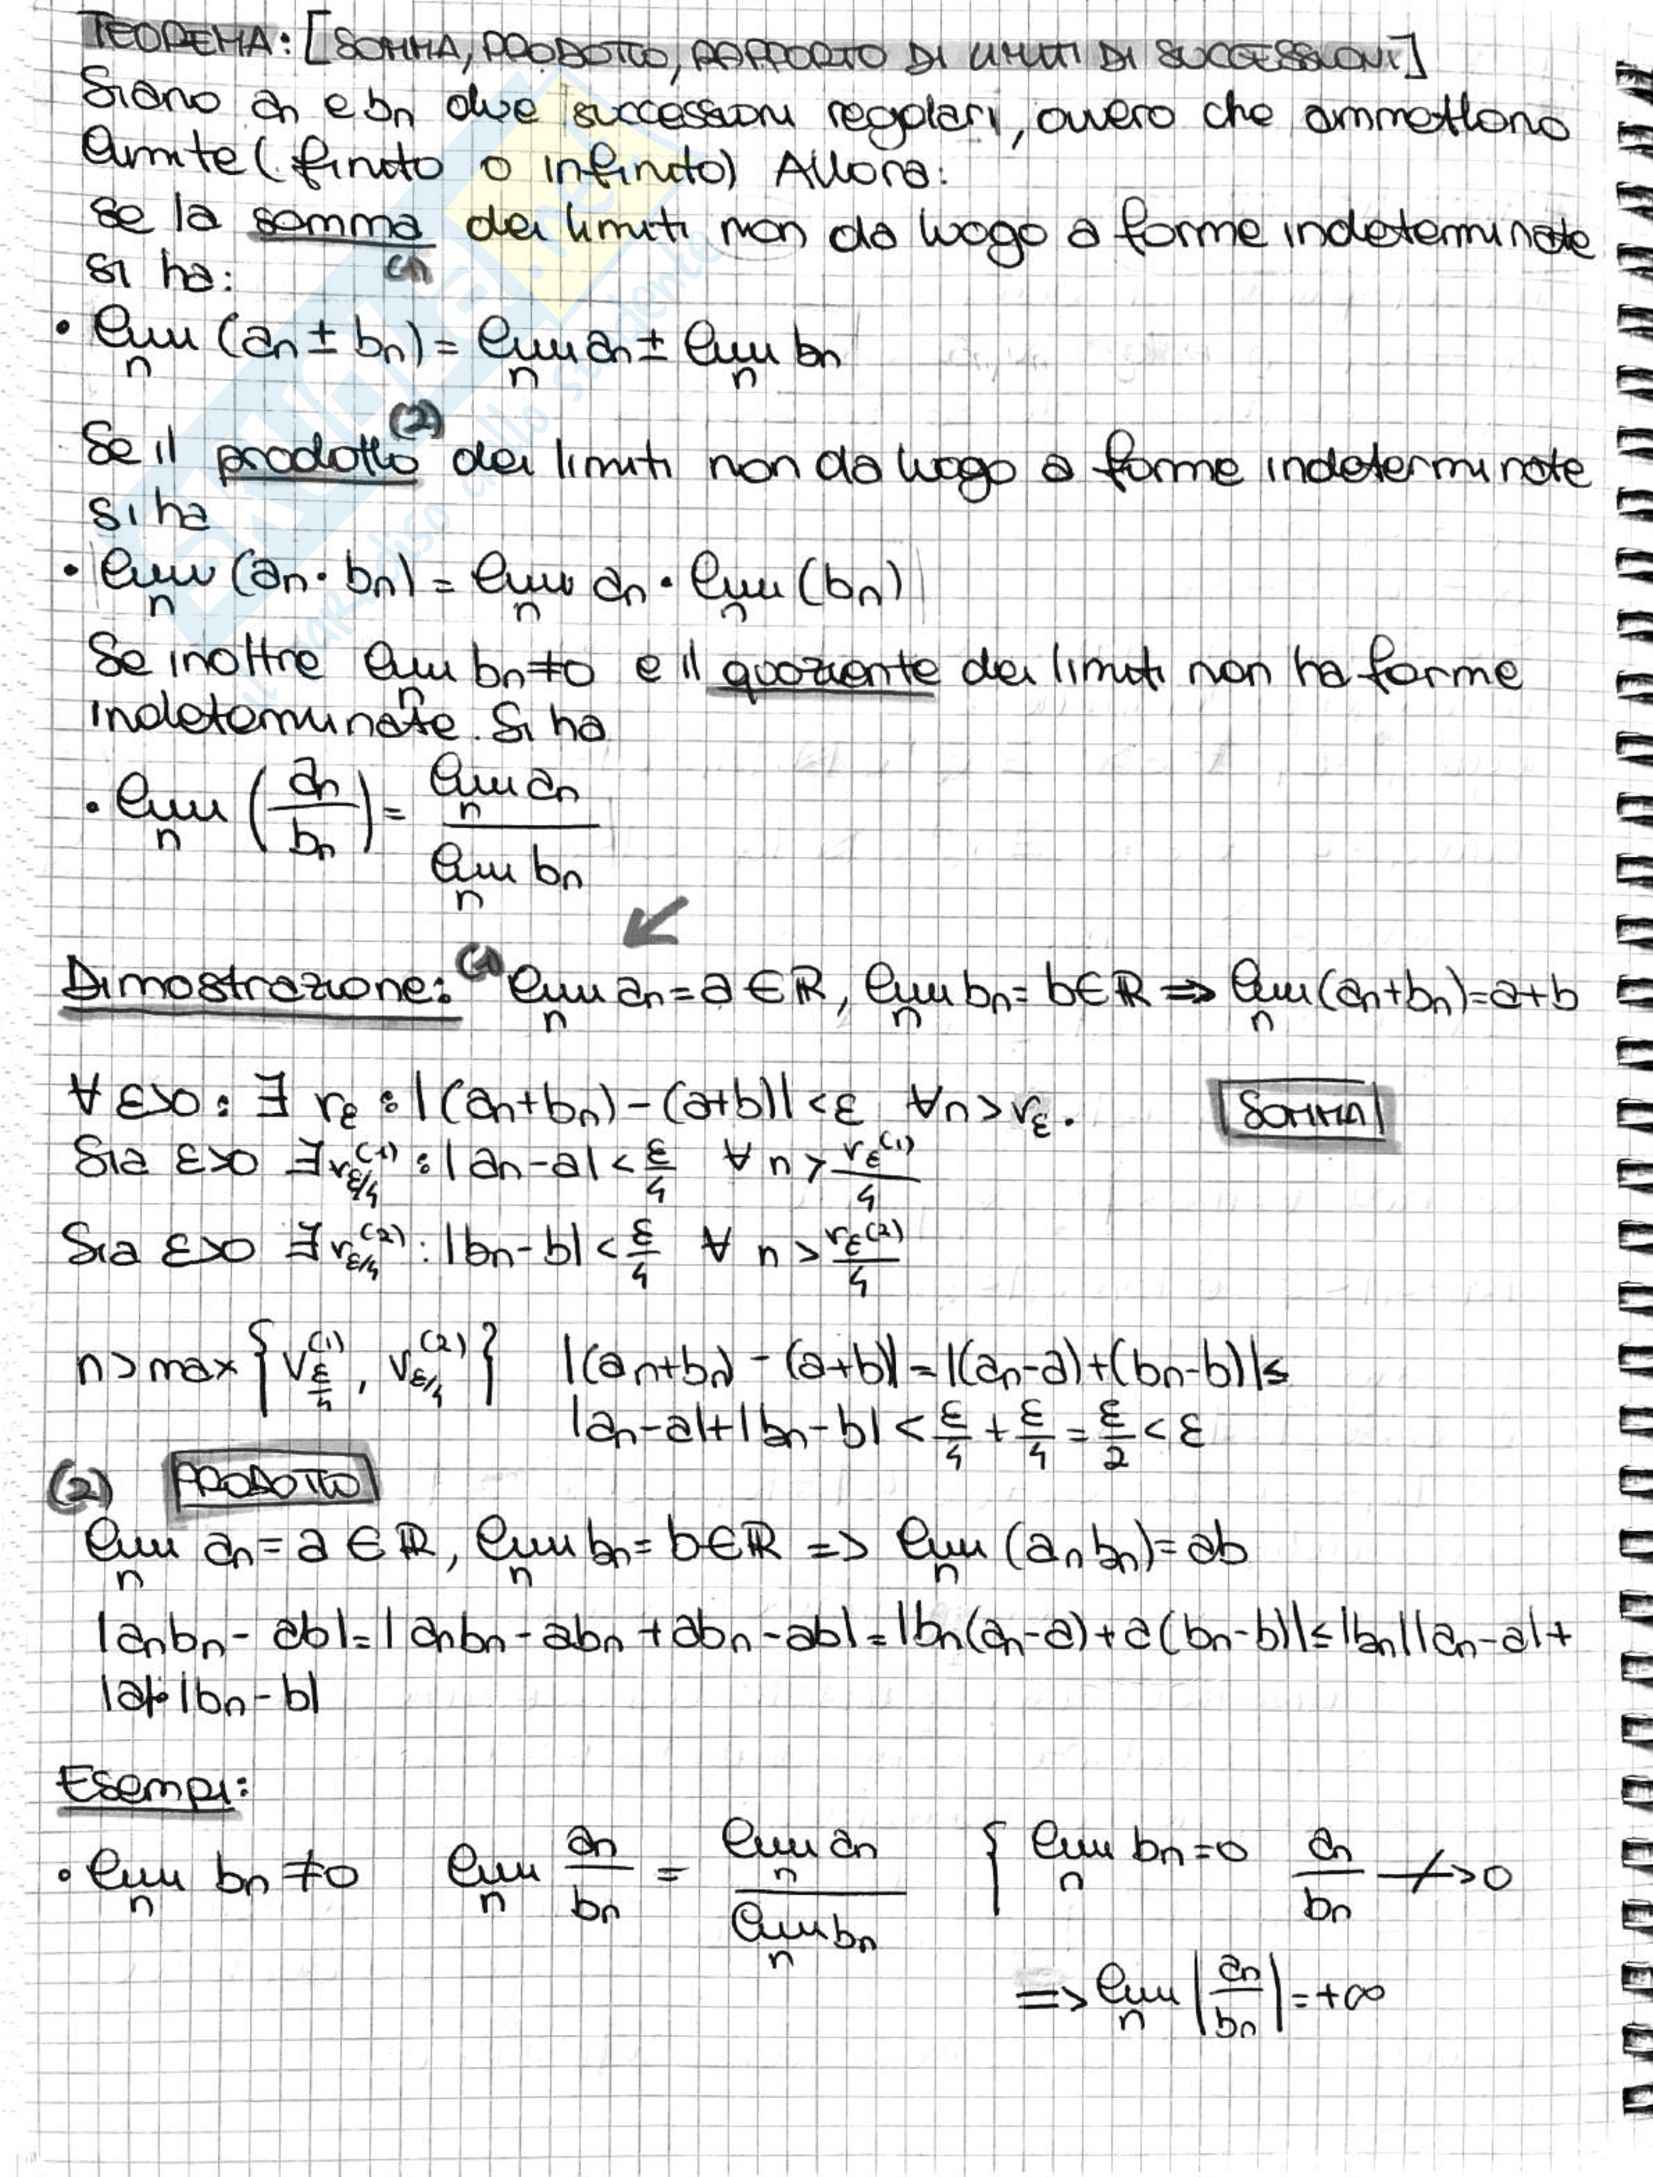 TEOREMA: [SOMMA, PRODOTTO, RAPPORTO DI LIMITI DI SUCCESSIONI]
Siano an e bn due successioni regolari, ovvero che ammettono
limite (finito o infinito) Allora:
se la somma dei limiti non da luogo a forme indeterminate
(1)
si ha:
• lim_n (an ± bn) = lim_n an ± lim_n bn
Se il prodotto (2) dei limiti non da luogo a forme indeterminate
si ha
• lim_n (an · bn) = lim_n an · lim_n (bn)
Se inoltre lim_n bn ≠ 0 e il quoziente dei limiti non ha forme
indeteminate. Si ha
• lim_n (an/bn) = lim_n an / lim_n bn
Dimostrazione: (1) lim_n an = a ∈ ℝ, lim_n bn = b ∈ ℝ => lim_n (an+bn) = a+b
∀ ε>0 : ∃ rε : |(an+bn) - (a+b)| < ε ∀n > rε. SOMMA
Sia ε>0 ∃ r_{ε/4}^(1) : |an-a| < ε/4 ∀ n > rε^(1)/4
Sia ε>0 ∃ r_{ε/4}^(2) : |bn-b| < ε/4 ∀ n > rε^(2)/4
n > max { V_{ε/4}^(1), V_{ε/4}^(2) } |(an+bn) - (a+b)| = |(an-a)+(bn-b)| ≤
|an-a|+|bn-b| < ε/4 + ε/4 = ε/2 < ε
(2) PRODOTTO
lim_n an = a ∈ ℝ, lim_n bn = b ∈ ℝ => lim_n (an bn) = ab
|anbn - ab| = |anbn - abn + abn - ab| = |bn(an-a) + a(bn-b)| ≤ |bn||an-a| +
|a|·|bn-b|
Esempi:
• lim_n bn ≠ 0 lim_n an/bn = lim_n an / lim_n bn { lim_n bn = 0 an/bn -/-> 0
=> lim_n |an/bn| = +∞